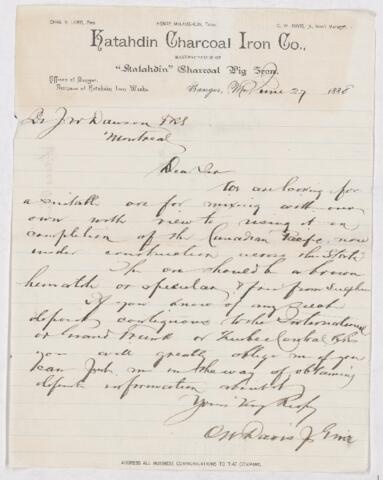 CHAS. V. LORD, Pres. HENRY McLAUGHLIN, Treas. O. W. DAVIS, Jr., Gen'l Manager.
Katahdin Charcoal Iron Co.,
MANUFACTURERS OF
"Katahdin" Charcoal Pig Iron.
Office at Bangor.
Furnace at Katahdin Iron Works.
Bangor, Me., June 27 1888
Dr J W Dawson FRS
Montreal
Dear Sir
We are looking for
a suitable ore for mixing with our
own with view to using it on
completion of the Canadian Pacific now
under construction across this State
The ore should be a brown
hematite or specular & free from Sulphur
If you know of any such
deposit contiguous to the International
or Grand Trunk or Quebec Central RRs
you will greatly oblige me if you
can put me in the way of obtaining
definite information about it
Yours Very Respy
O W Davis Jr
ADDRESS ALL BUSINESS COMMUNICATIONS TO THE COMPANY.